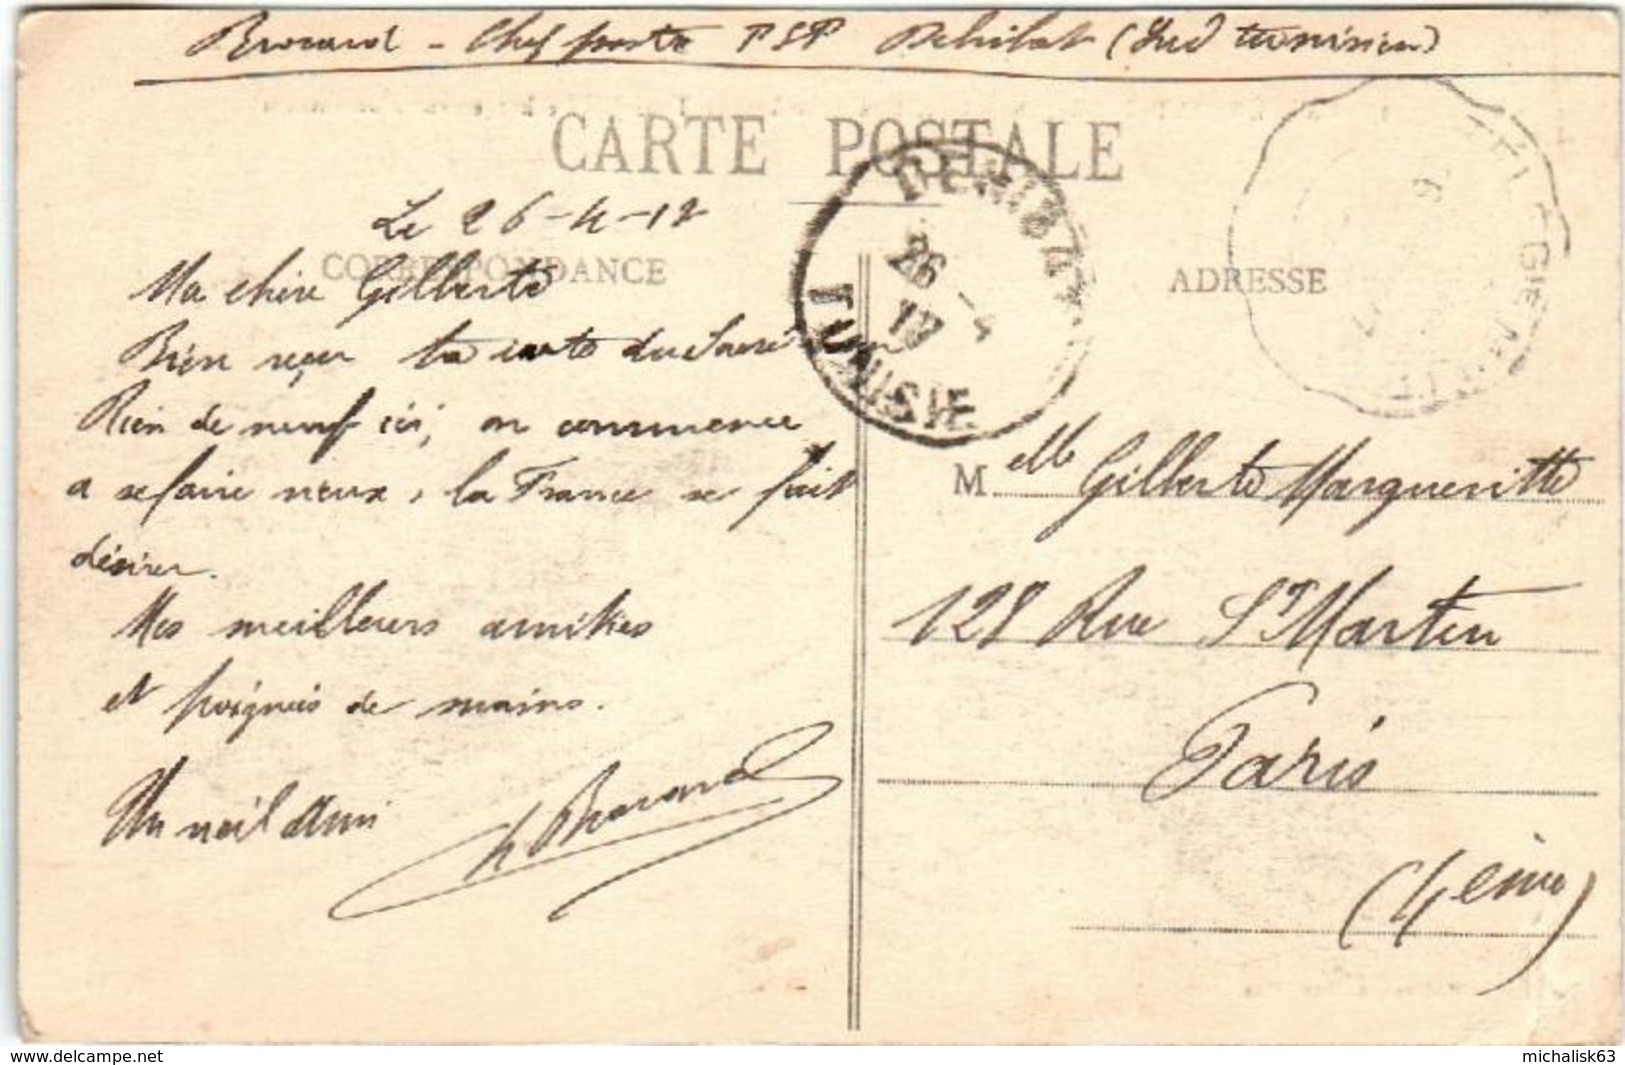 Brocard - Chef poste TSF Dehibat (Sud tunisien)
CARTE POSTALE
Le 26-4-17
CORRESPONDANCE
Ma chère Gilberte
Bien reçu ta carte du Sacré
Rien de neuf ici, on commence
a se faire vieux, la France se fait
désirer.
Mes meilleurs amitiés
et poignées de mains.
Un vieil Ami
Brocard
DEHIBAT
26 -4
17
TUNISIE
ADRESSE
Melle Gilberte Margueritte
128 Rue St Martin
Paris
(4eme)
www.delcampe.net
michalisk63